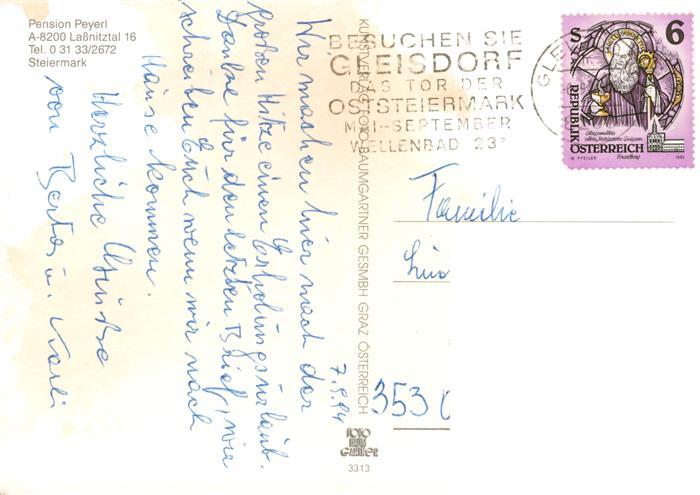 Pension Peyerl
A-8200 Laßnitztal 16
Tel. 0 31 33/2672
Steiermark
Wir machen hier nach der
großen Hitze einen Erholungsurlaub.
Danke für den letzten Brief, wir
schreiben Euch wenn wir nach
Hause kommen.
Herzliche Grüße
von Berta u. Karli
7.9.94
KUNSTVERLAG FOTO BAUMGARTNER GESMBH GRAZ ÖSTERREICH
FOTO
BAUM
GARTNER
3313
BESUCHEN SIE
GLEISDORF
DAS TOR DER
OSTSTEIERMARK
MAI-SEPTEMBER
WELLENBAD 23°
GLEI
S 6
REPUBLIK
ÖSTERREICH
W. PFEILER 1993
Familie
353